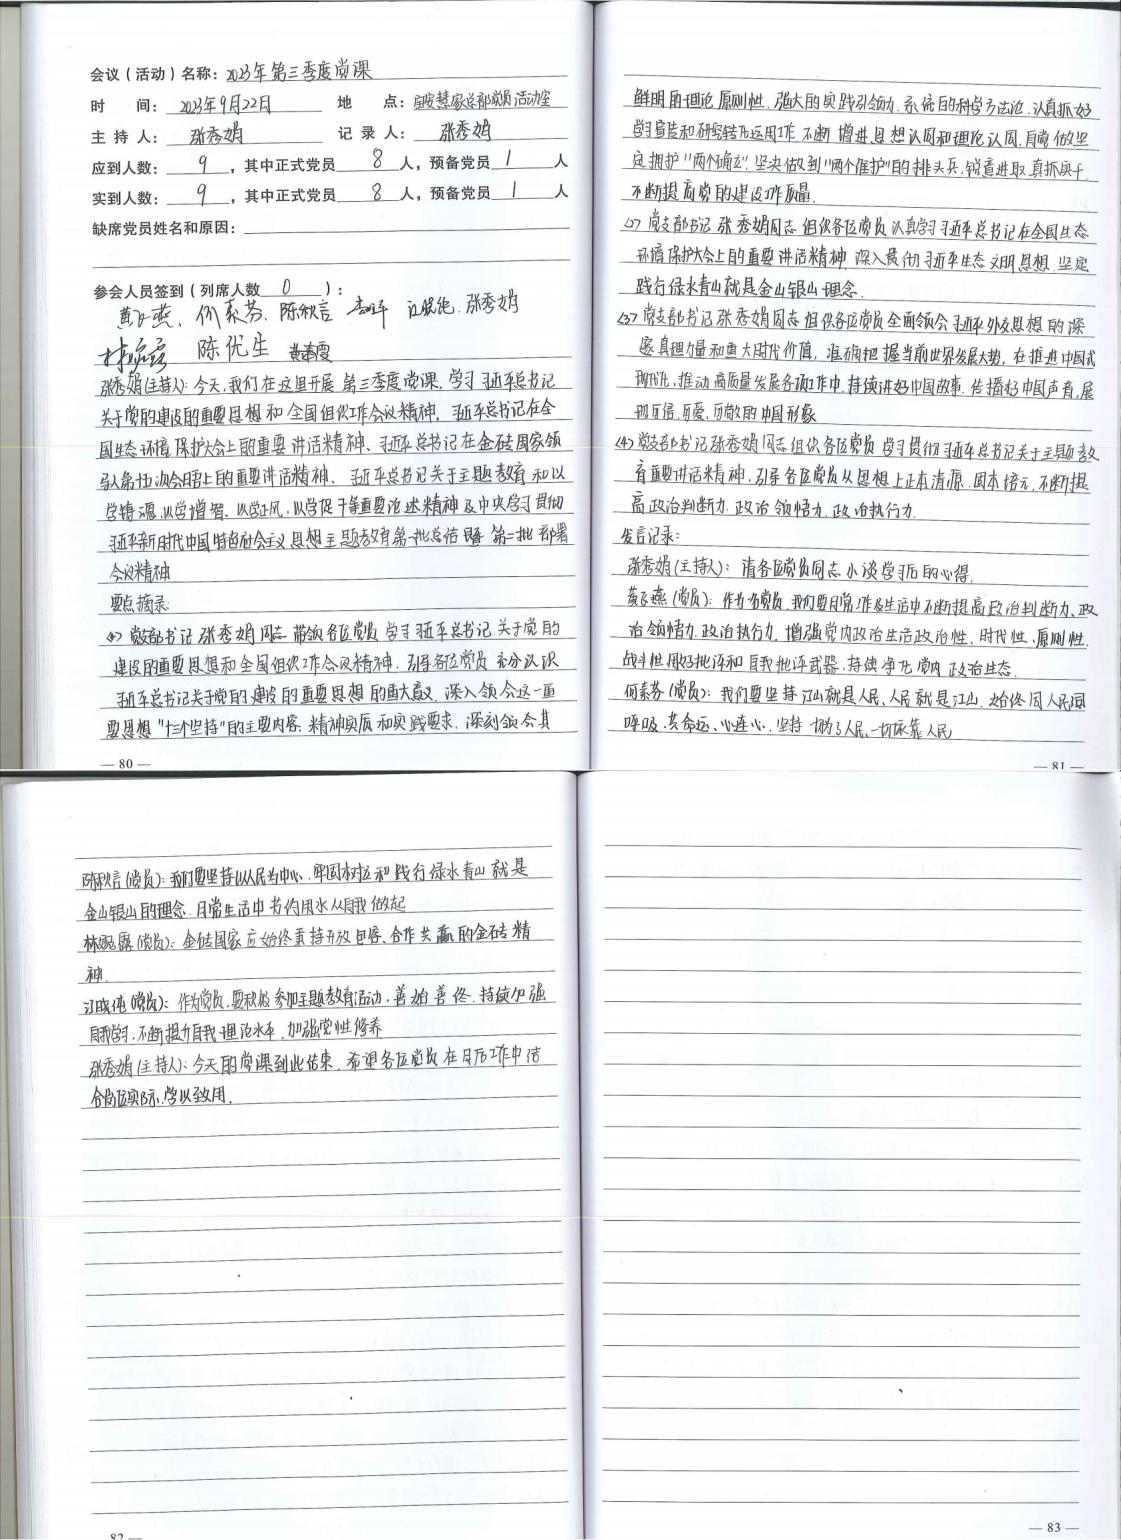 会议（活动）名称：2023年第三季度党课
时　间：2023年9月22日　地　点：慧家总部党员活动室
主持人：张秀娟　记录人：张秀娟
应到人数：9，其中正式党员8人，预备党员1人
实到人数：9，其中正式党员8人，预备党员1人
缺席党员姓名和原因：
参会人员签到（列席人数0）：
黄飞燕、何素芬、陈秋言 张秀娟
陈优生
张秀娟(主持人)：今天，我们在这里开展第三季度党课，学习习近平总书记
关于党的建设的重要思想和全国组织工作会议精神、习近平总书记在全
国生态环境保护大会上的重要讲话精神、习近平总书记在金砖国家领
导人第十五次会晤上的重要讲话精神、习近平总书记关于主题教育和以
学铸魂、以学增智、以学正风、以学促干等重要论述精神及中央学习贯彻
习近平新时代中国特色社会主义思想主题教育第一批总结暨第二批部署
会议精神
要点摘录：
(1) 党支部书记张秀娟同志带领各位党员学习习近平总书记关于党的
建设的重要思想和全国组织工作会议精神，引导各位党员充分认识
习近平总书记关于党的建设的重要思想的重大意义，深入领会这一重
要思想“十三个坚持”的主要内容、精神实质和实践要求，深刻领会其
— 80 —
鲜明的理论原则性、强大的实践引领力、系统的科学方法论，认真抓好
学习宣传和研究转化运用工作，不断增进思想认同和理论认同，自觉做坚
定拥护“两个确立”、坚决做到“两个维护”的排头兵，锐意进取、真抓实干，
不断提高党的建设工作质量。
(2) 党支部书记张秀娟同志组织各位党员认真学习习近平总书记在全国生态
环境保护大会上的重要讲话精神，深入贯彻习近平生态文明思想，坚定
践行绿水青山就是金山银山理念。
(3) 党支部书记张秀娟同志组织各位党员全面领会习近平外交思想的深
邃真理力量和重大时代价值，准确把握当前世界发展大势，在推进中国式
现代化、推动高质量发展各项工作中，持续讲好中国故事、传播好中国声音，展
现可信、可爱、可敬的中国形象
(4) 党支部书记张秀娟同志组织各位党员学习贯彻习近平总书记关于主题教
育重要讲话精神，引导各位党员从思想上正本清源、固本培元，不断提
高政治判断力、政治领悟力、政治执行力。
发言记录：
张秀娟(主持人)：请各位党员同志小谈学习后的心得。
黄飞燕(党员)：作为党员，我们要日常工作及生活中不断提高政治判断力、政
治领悟力、政治执行力，增强党内政治生活政治性、时代性、原则性、
战斗性，用好批评和自我批评武器，持续净化党内政治生态。
何素芬(党员)：我们要坚持江山就是人民，人民就是江山，始终同人民同
呼吸、共命运、心连心，坚持一切为了人民、一切依靠人民
— 81 —
陈秋言(党员)：我们要坚持以人民为中心，牢固树立和践行绿水青山就是
金山银山的理念，日常生活中节约用水从自我做起
林婉露(党员)：金砖国家应始终秉持开放包容、合作共赢的金砖精
神。
江晓纯(党员)：作为党员，要积极参加主题教育活动，善始善终，持续加强
自我学习，不断提升自我理论水平，加强党性修养
张秀娟(主持人)：今天的党课到此结束，希望各位党员在日后工作中结
合岗位实际，学以致用。
82 —
— 83 —